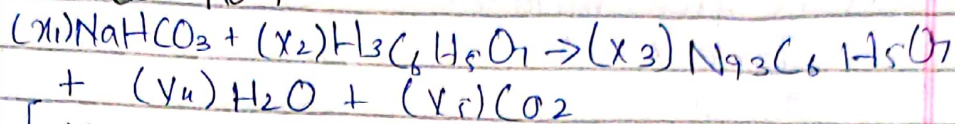 (x₁)NaHCO₃ + (x₂)H₃C₆H₅O₇ → (x₃) Na₃C₆H₅O₇
+ (x₄) H₂O + (x₅) CO₂